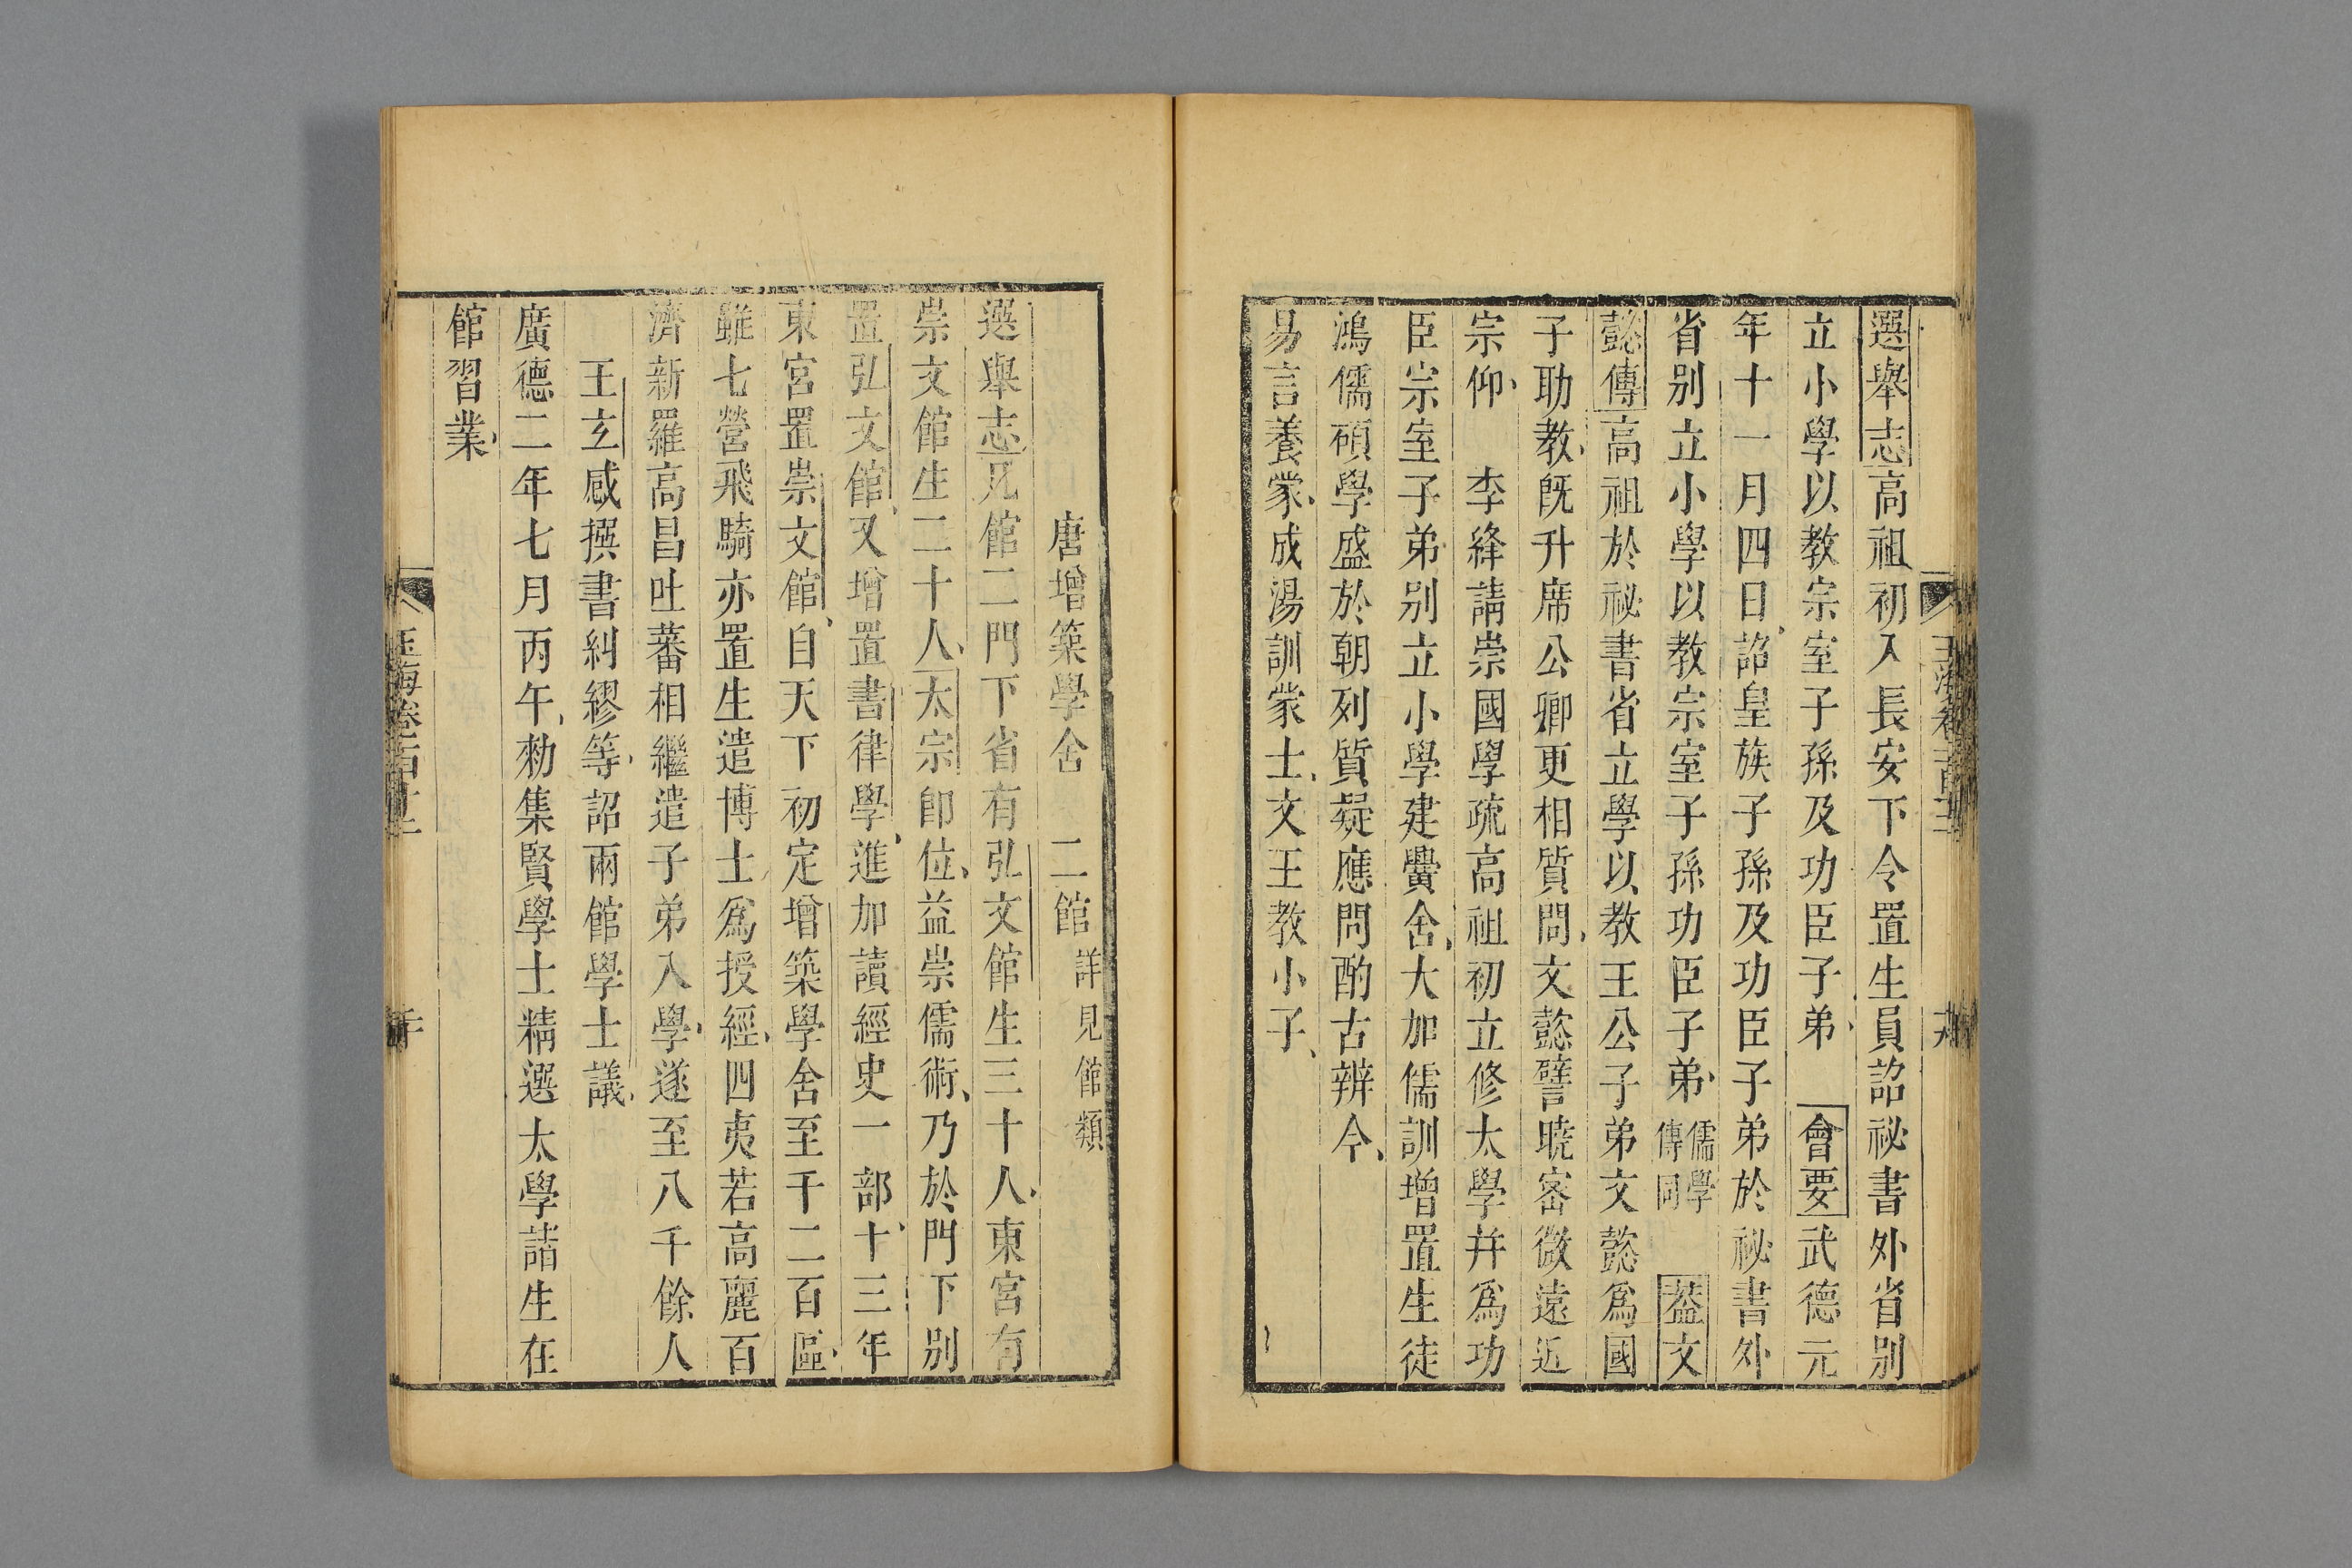 選舉志高祖初入長安下令置生員詔祕書外省別
立小學以教宗室子孫及功臣子弟　會要武德元
年十一月四日詔皇族子孫及功臣子弟於祕書外
省别立小學以教宗室子孫功臣子弟儒學傳同　葢文
懿傳高祖於祕書省立學以教王公子弟文懿爲國
子助教旣升席公卿更相質問文懿譬曉密微遠近
宗仰　李絳請崇國學疏高祖初立修太學幷爲功
臣宗室子弟別立小學建黌舍大加儒訓增置生徒
鴻儒碩學盛於朝列質疑應問酌古辨今
易言養蒙成湯訓蒙士文王教小子
唐增築學舍　二館詳見館類
選舉志凡館二門下省有弘文館生三十人東宮有
崇文館生二十人太宗卽位益崇儒術乃於門下别
置弘文館又增置書律學進加讀經史一部十三年
東宮置崇文館自天下初定增築學舍至千二百區
雖七營飛騎亦置生遣博士爲授經四夷若高麗百
濟新羅高昌吐蕃相繼遣子弟入學遂至八千餘人
王玄感撰書糾繆等詔兩館學士議
廣德二年七月丙午勑集賢學士精選太學諸生在
館習業
玉海卷